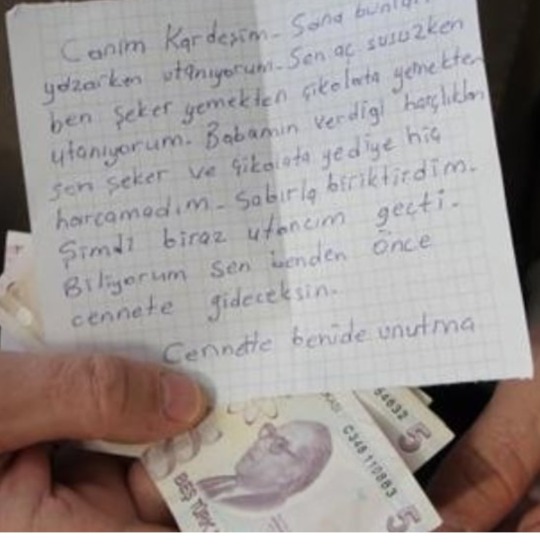 Canım Kardeşim. Sana bunları
yazarken utanıyorum. Sen aç susuzken
ben şeker yemekten çikolata yemekten
utanıyorum. Babamın verdiği harçlıkları
sen şeker ve çikolata yediye hiç
harcamadım. Sabırla biriktirdim.
Şimdi biraz utancım geçti.
Biliyorum sen benden önce
cennete gideceksin.
Cennette benide unutma
54632 5
C348110883
BEŞ TÜRK
5